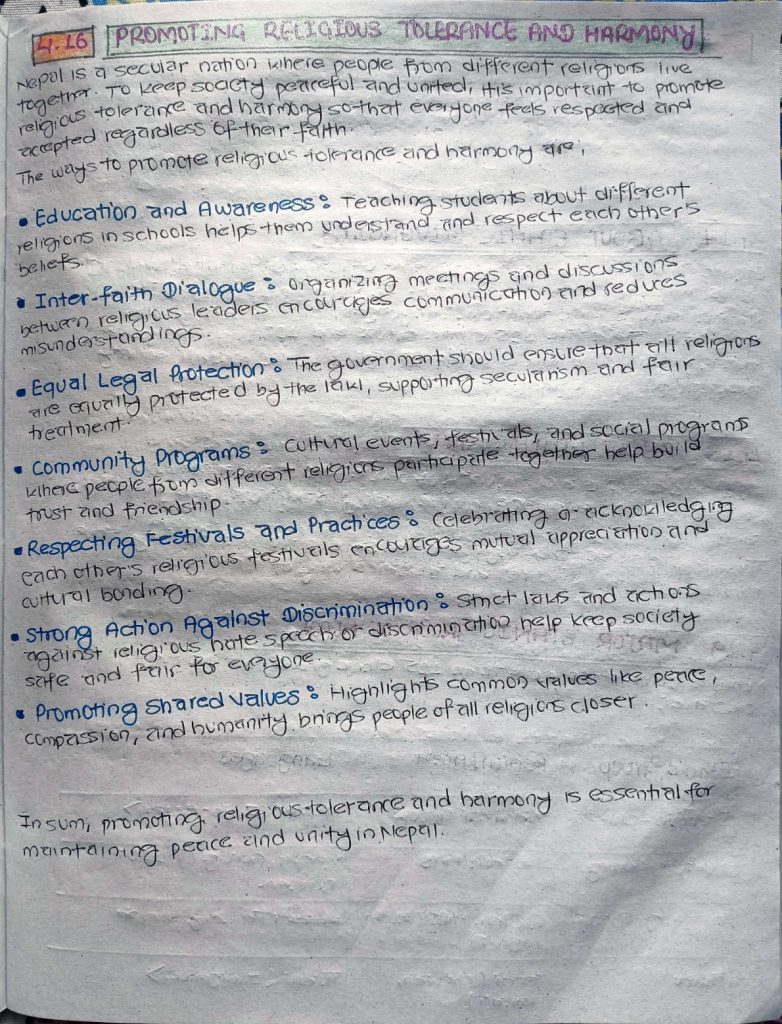 4.16 PROMOTING RELIGIOUS TOLERANCE AND HARMONY
Nepal is a secular nation where people from different religions live
together. To keep society peaceful and united, it is important to promote
religious tolerance and harmony so that everyone feels respected and
accepted regardless of their faith.
The ways to promote religious tolerance and harmony are,
• Education and Awareness: Teaching students about different
religions in schools helps them understand and respect each other's
beliefs.
• Inter-faith Dialogue: Organizing meetings and discussions
between religious leaders encourages communication and reduces
misunderstandings.
• Equal Legal Protection: The government should ensure that all religions
are equally protected by the law, supporting secularism and fair
treatment.
• Community Programs: Cultural events, festivals, and social programs
where people from different religions participate together help build
trust and friendship.
• Respecting Festivals and Practices: Celebrating or acknowledging
each other's religious festivals encourages mutual appreciation and
cultural bonding.
• Strong Action Against Discrimination: Strict laws and actions
against religious hate speech or discrimination help keep society
safe and fair for everyone.
• Promoting Shared Values: Highlights common values like peace,
compassion, and humanity brings people of all religions closer.
In sum, promoting religious tolerance and harmony is essential for
maintaining peace and unity in Nepal.